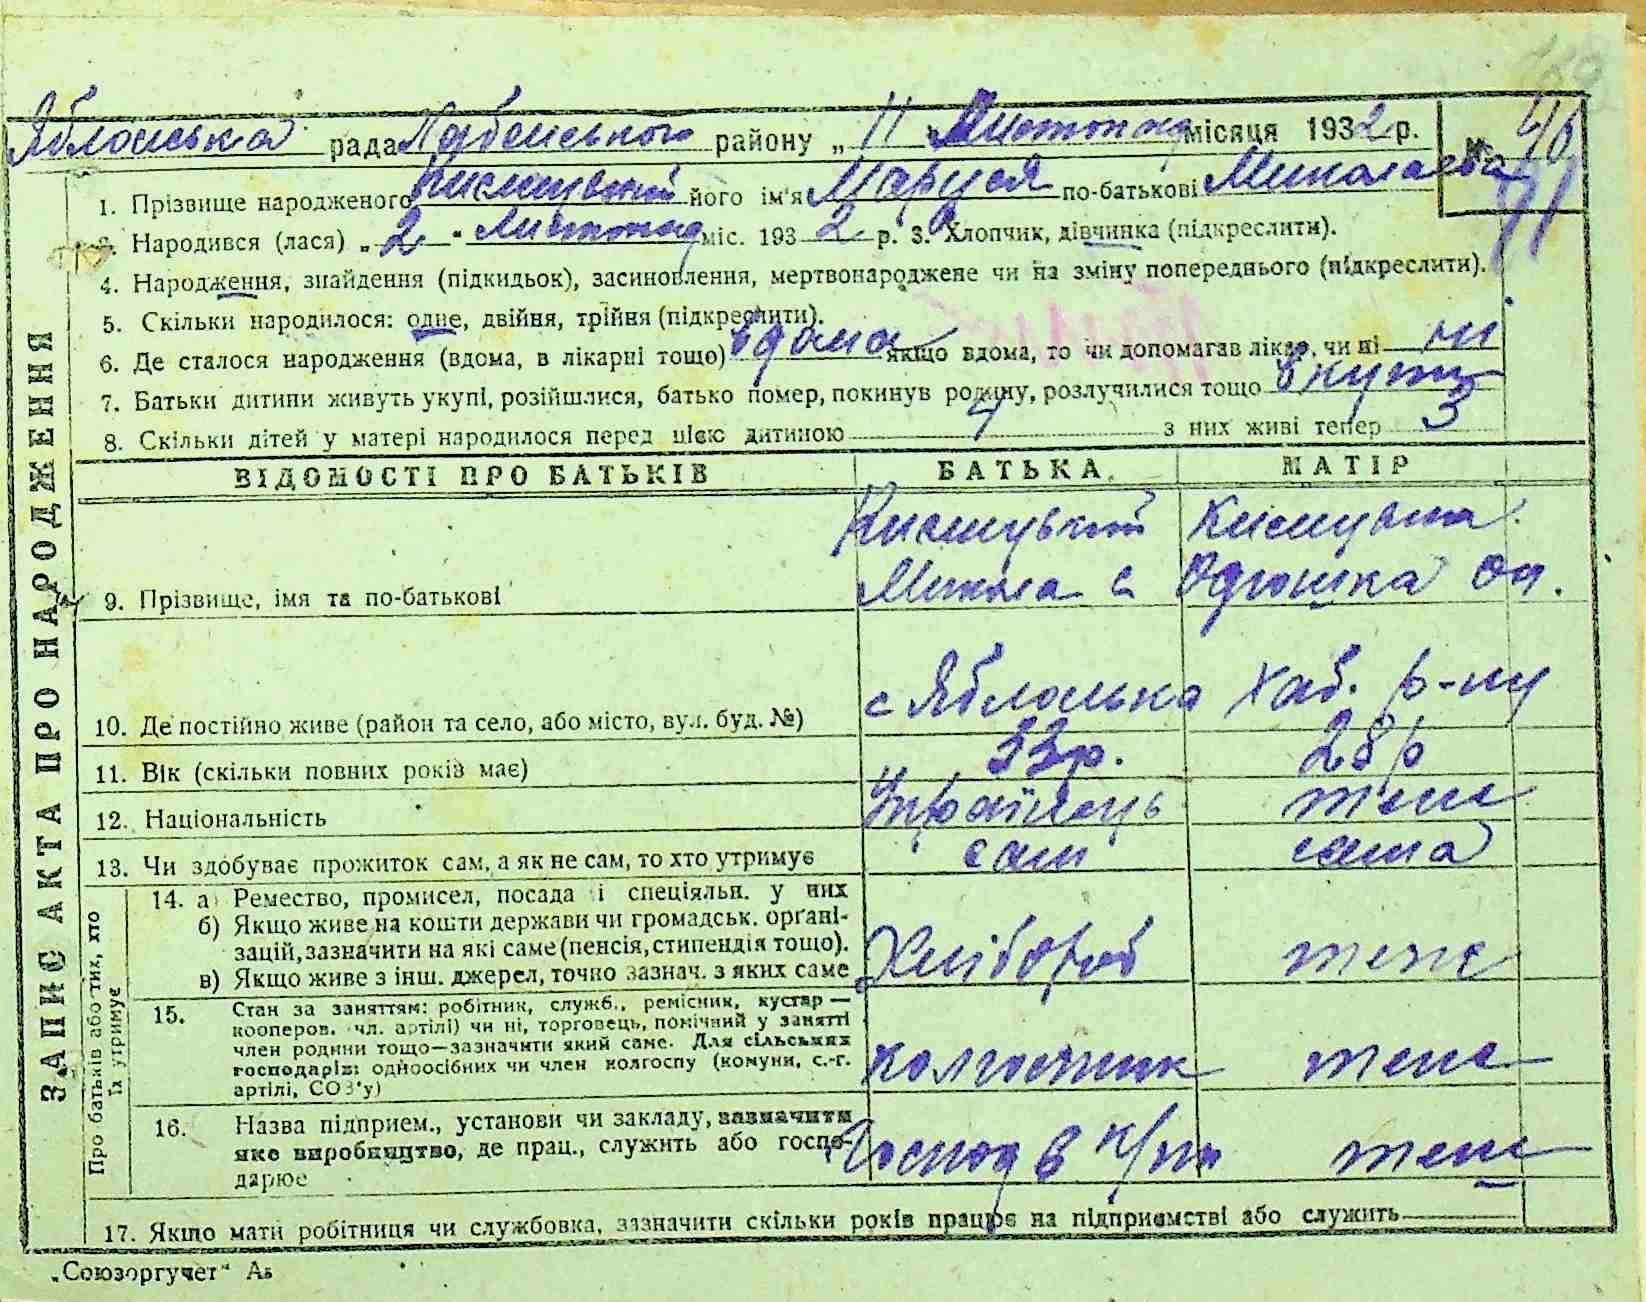 Яблонська рада Хабенського району „ 11 " Листопад місяця 1932 р. № 46
1. Прізвище народженого його ім'я Маруся по-батькові Миколаєва
2. Народився (лася) „ 2 " Листопад міс. 1932 р. 3. Хлопчик, дівчинка (підкреслити).
4. Народження, знайдення (підкидьок), засиновлення, мертвонароджене чи на зміну попереднього (підкреслити).
5. Скільки народилося: одне, двійня, трійня (підкреслити).
6. Де сталося народження (вдома, в лікарні тощо) вдома якщо вдома, то чи допомагав лікар, чи ні ні
7. Батьки дитини живуть укупі, розійшлися, батько помер, покинув родину, розлучилися тощо вкупі
8. Скільки дітей у матері народилося перед цією дитиною 4 з них живі тепер 3
ВІДОМОСТІ ПРО БАТЬКІВ БАТЬКА МАТІР
9. Прізвище, імя та по-батькові Микола С
10. Де постійно живе (район та село, або місто, вул. буд. №) с Яблонька Хаб. р-ну
11. Вік (скільки повних років має) 33р. 28р
12. Національність Українець теж
13. Чи здобуває прожиток сам, а як не сам, то хто утримує сам сама
14. а) Ремество, промисел, посада і спеціяльн. у них
б) Якщо живе на кошти держави чи громадськ. орґані-
зацій, зазначити на які саме (пенсія, стипендія тощо).
в) Якщо живе з інш. джерел, точно зазнач. з яких саме
Хлібороб теж
15. Стан за заняттям: робітник, служб., ремісник, кустар —
кооперов. чл. артілі) чи ні, торговець, помічний у занятті
член родини тощо—зазначити який саме. Для сільських
господарів: одноосібних чи член колгоспу (комуни, с.-г.
артілі, СОЗ'у)
колгоспник теж
16. Назва підприєм., установи чи закладу, зазначити
яке виробництво, де прац., служить або госпо-
дарює
Господ в теж
17. Якщо мати робітниця чи службовка, зазначити скільки років працює на підприємстві або служить
ЗАПИС АКТА ПРО НАРОДЖЕННЯ
Про батьків або тих, хто
їх утримує
„Союзоргучет"